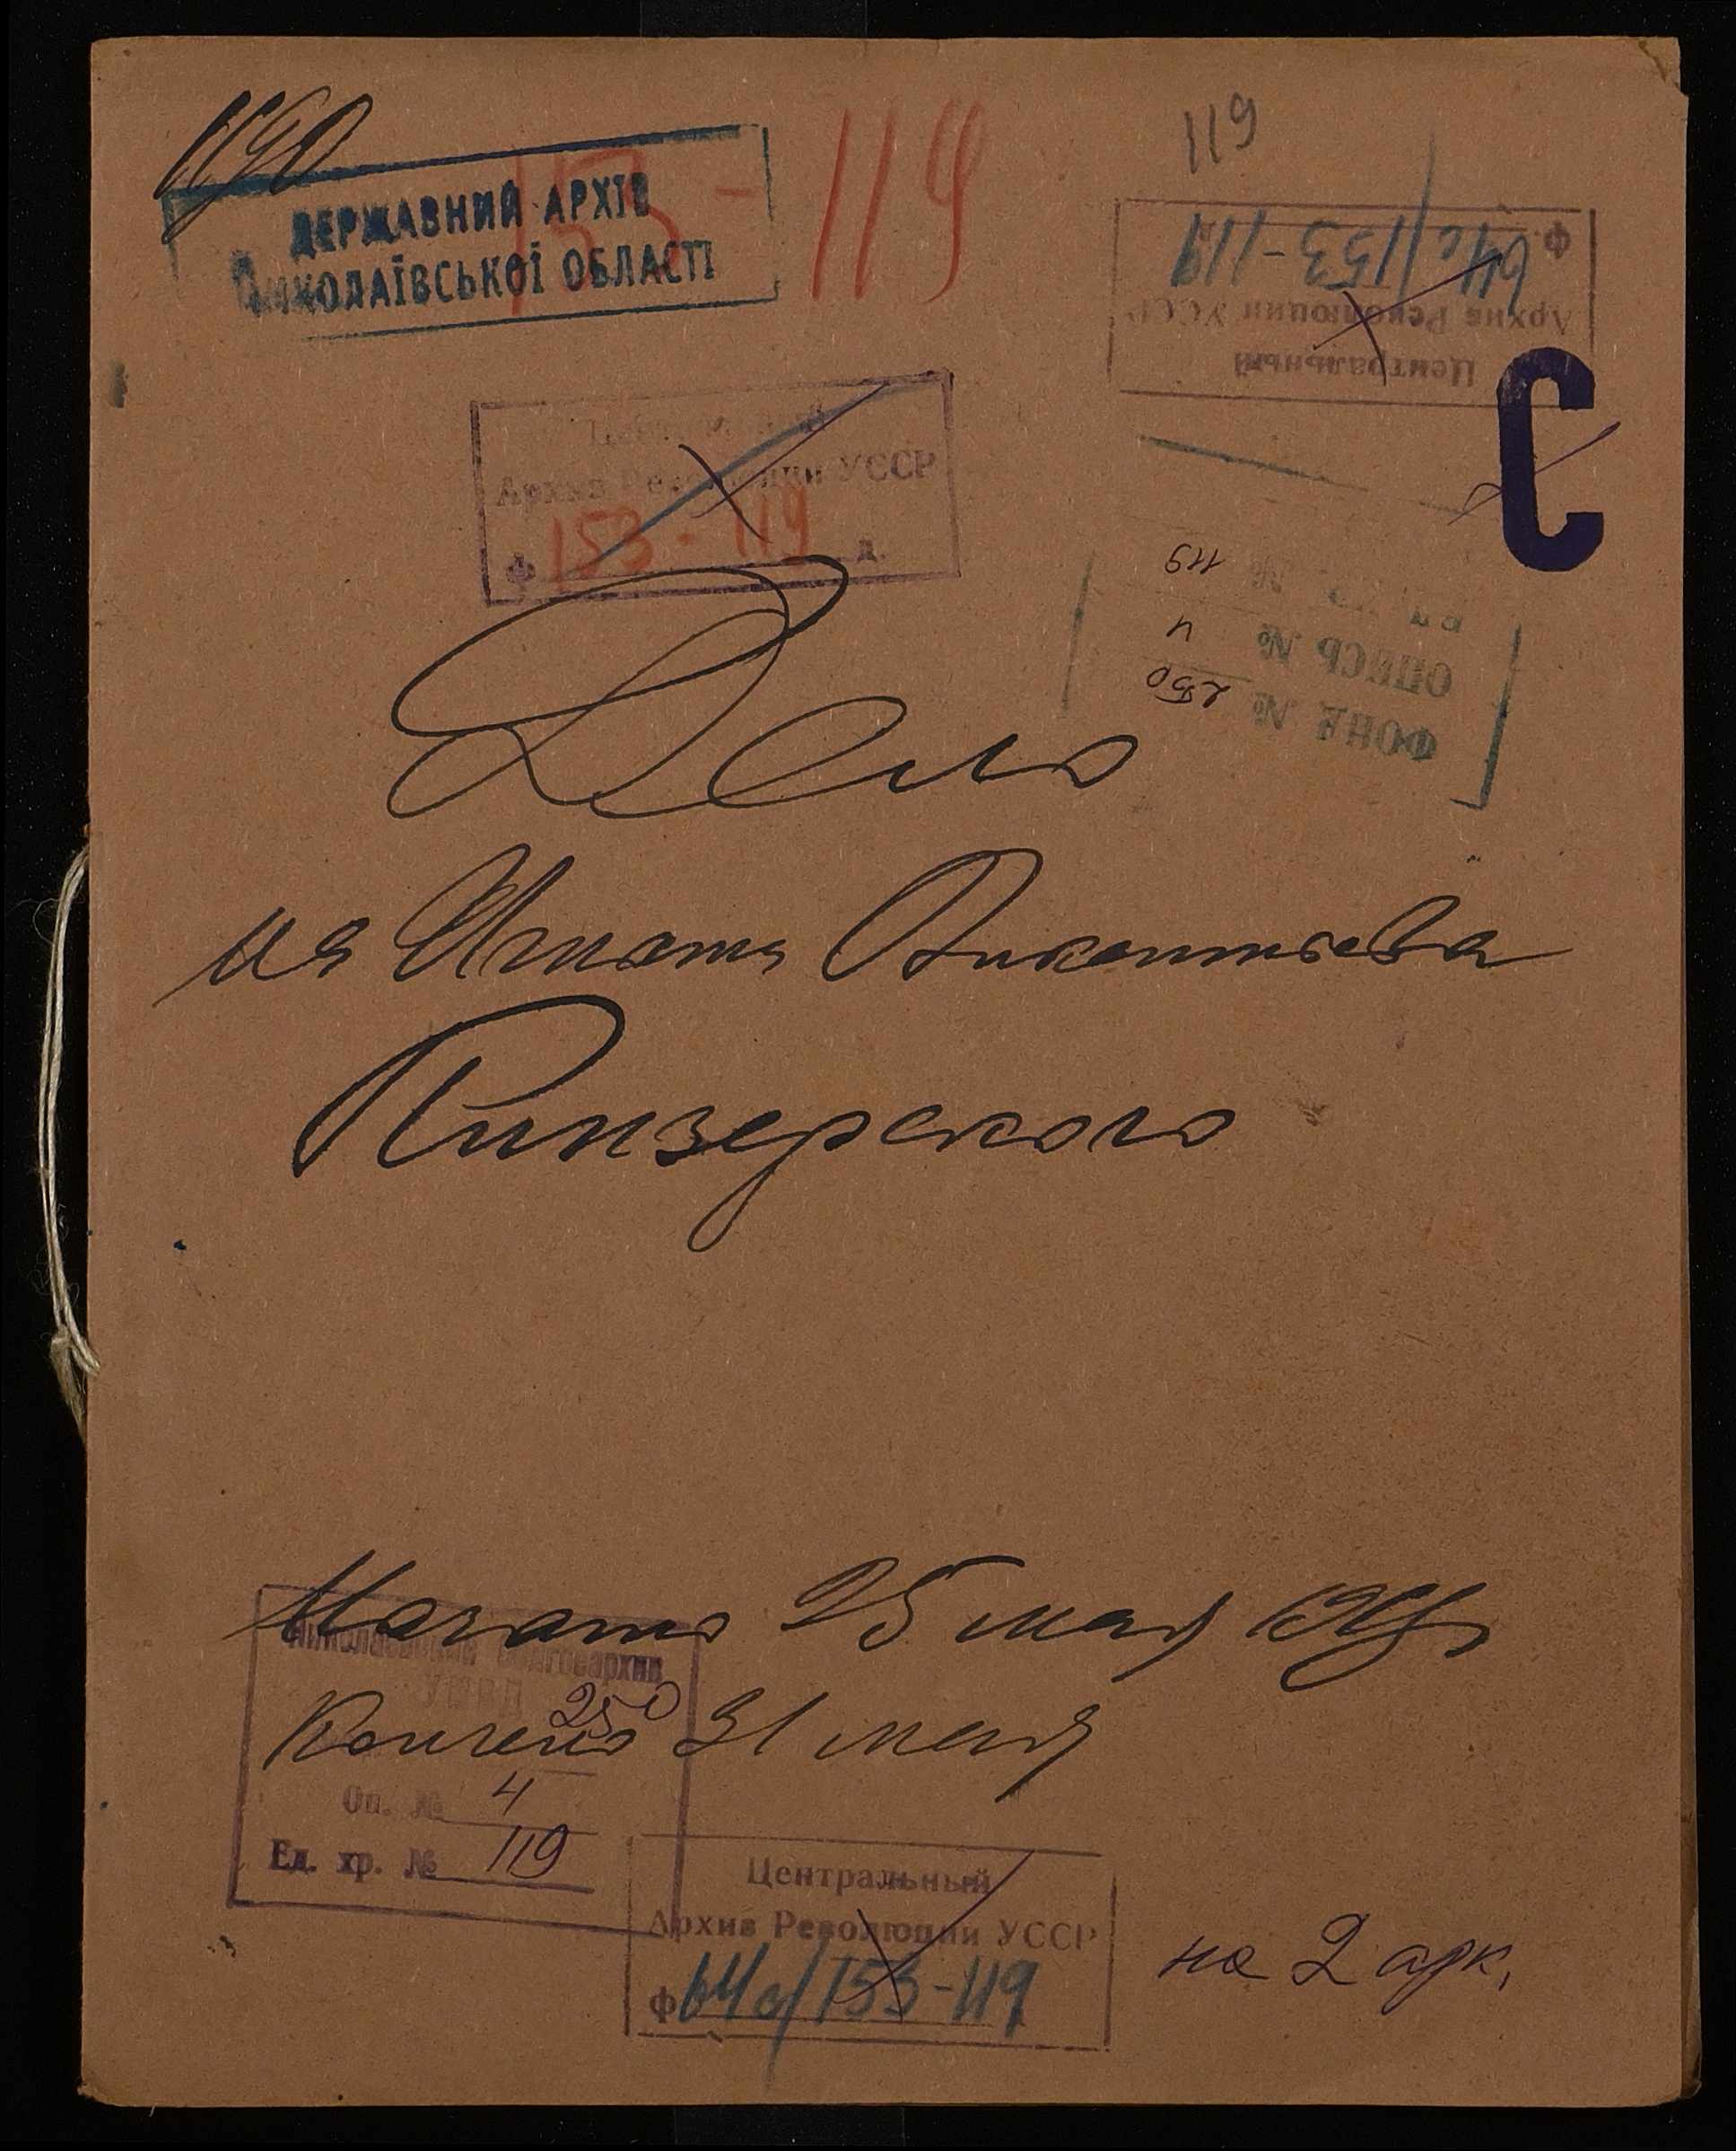 1190
ДЕРЖАВНИЙ АРХІВ
МИКОЛАЇВСЬКОЇ ОБЛАСТІ
153-119
119
Центральный
Архив Революции УССР
Ф. 64с/153-119
Центральный
Архив Революции УССР
ф 153-119 д.
С
ФОНД № 250
ОПИСЬ № 4
119
Дело
Игната Викентьева
Кинзерского
Начато 25 мая
Кончено 31 мая
Николаевский Облгосархив
250
Оп. № 4
Ед. хр. № 119
Центральный
Архив Революции УССР
ф 64с/153-119
на 2 арк.